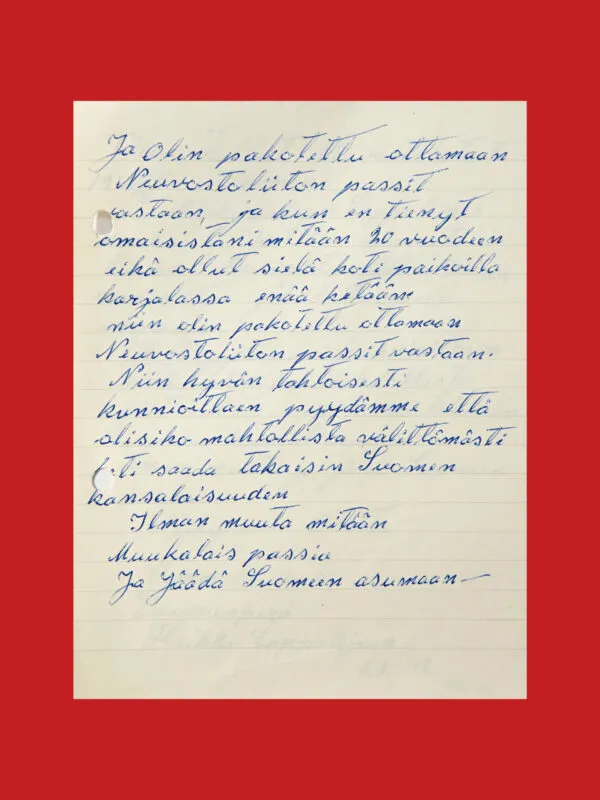 Ja Olin pakotettu ottamaan
Neuvostoliiton passit
vastaan, ja kun en tienyt
omaisistani mitään 20 vuodeen
eikä ollut sielä koti paikoilla
karjalassa enää ketään
niin olin pakotettu ottamaan
Neuvostoliiton passit vastaan.
Niin hyvän tahtoisesti
kunnioittaen pyydämme että
olisiko mahtollista välittömästi
saada takaisin Suomen
kansalaisuuden
Ilman muuta mitään
Muukalais passia
Ja Jäädä Suomeen asumaan—